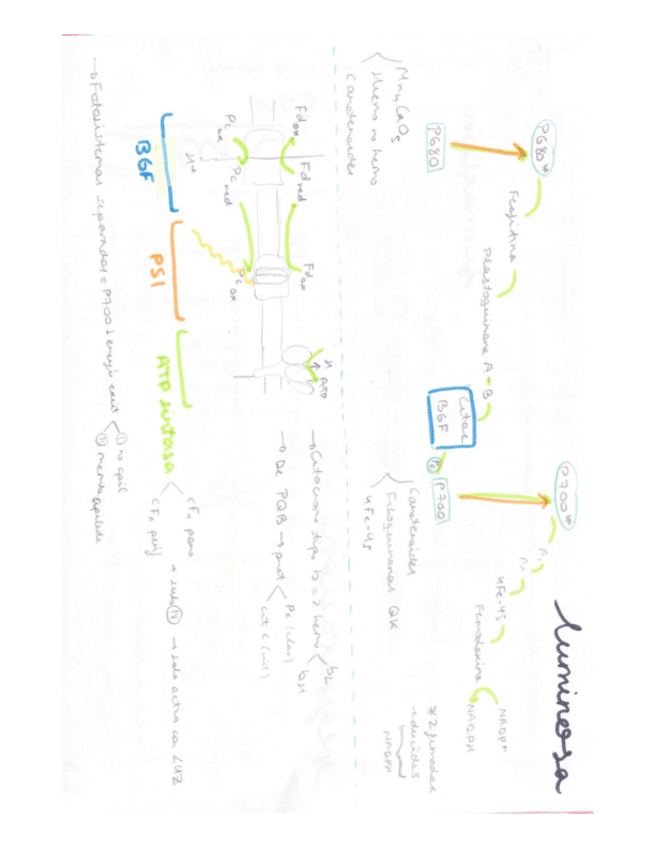 Luminosa
P680*
Feofitina
Plastoquinona A-B
Citoc
B6F
Pc
P700
P700*
A0
A1
4Fe-4S
Ferredoxina
NADP+
NADPH
P680
Mn4CaO5
Hierro no hemo
Carotenoides
Carotenoides
Filoquinonas QK
4Fe-4S
*2 ferredox
reducidas
NADPH
Fdox
Fdred
Fdox
Pcox
Pcred
Pcox
H+
H
ATP
→ Citocromo tipo b = 2 hemo
bL
bH
→ De PQB → prot
Pc (clor)
cit c
B6F
PSI
ATP sintasa
CF0
CF1
→ solo activa con LUZ
→ Fotosistemas separados = P700 ↓ energía
① no apil